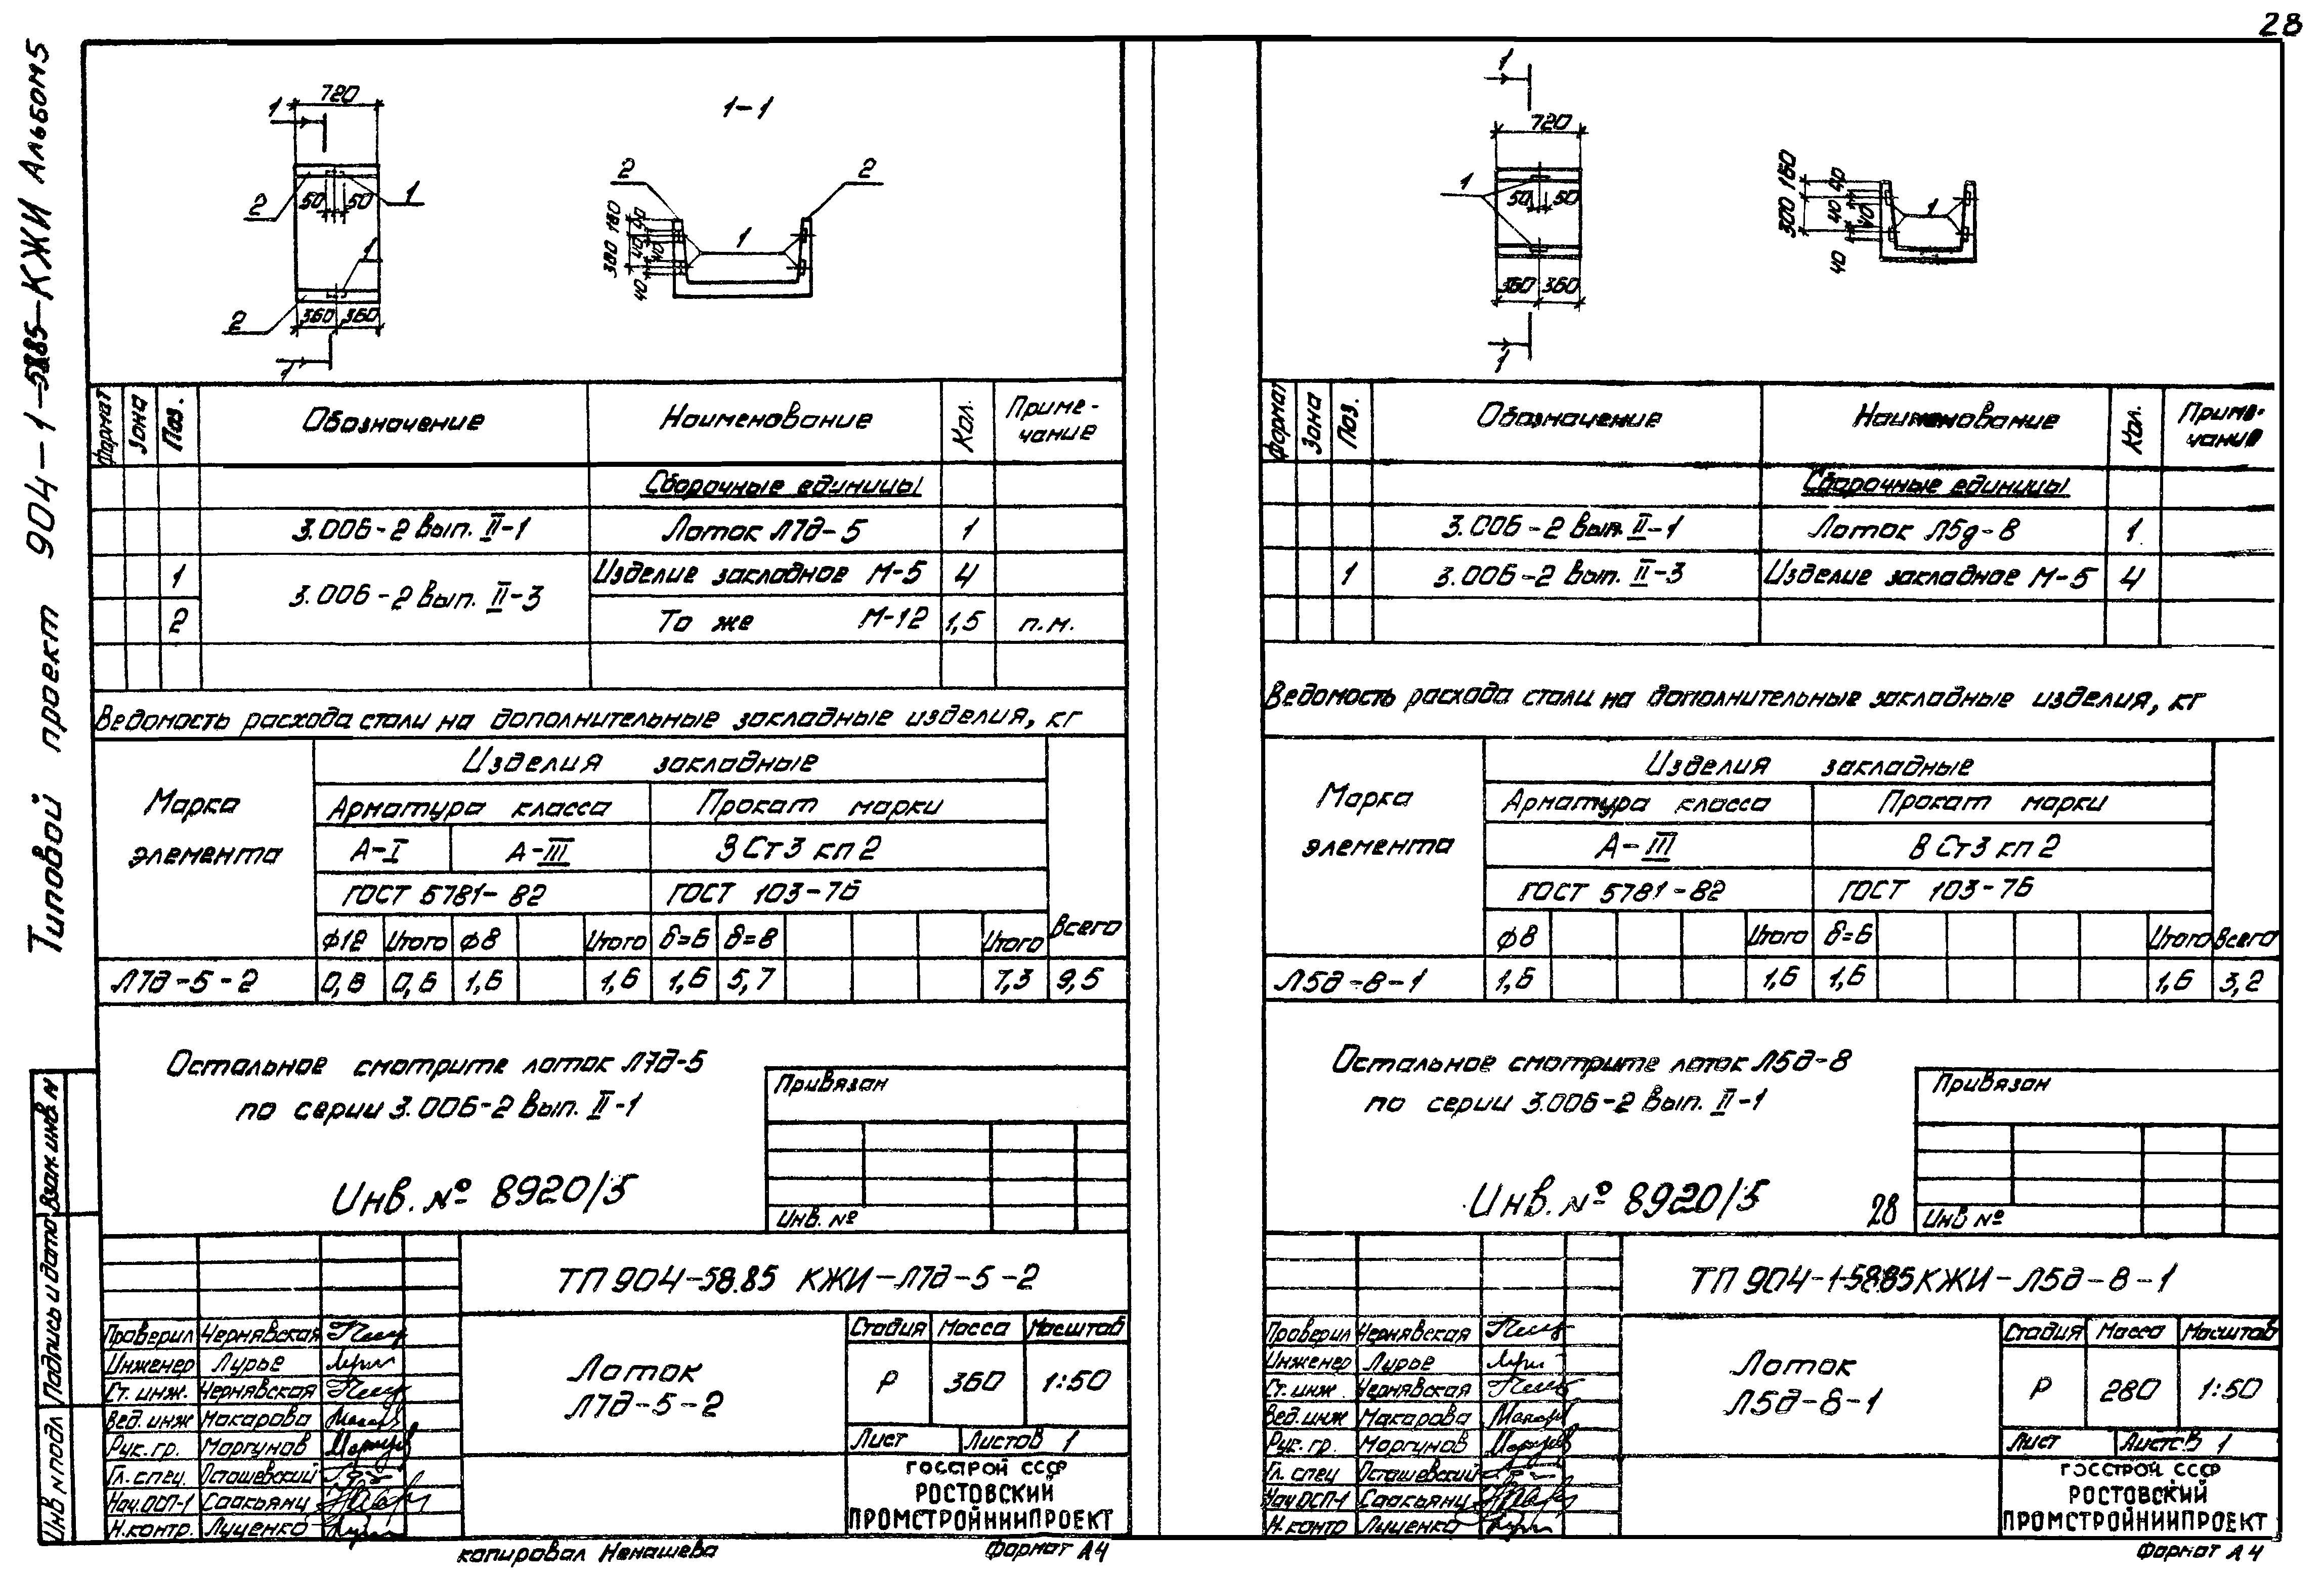 28
Типовой проект 904-1-58.85-КЖИ Альбом 5
1
720
2
50 50
1
1
2
360 360
1
1-1
2
2
300 160
40 40
40 40
1
Формат Зона Поз. Обозначение Наименование Кол. Приме-
чание
Сборочные единицы
3.006-2 вып. II-1 Лоток Л7д-5 1
1 3.006-2 вып. II-3 Изделие закладное М-5 4
2 То же М-12 1,5 п.м.
Ведомость расхода стали на дополнительные закладные изделия, кг
Марка элемента
Изделия закладные
Арматура класса Прокат марки
А-I А-III ВСт3 кп2
ГОСТ 5781-82 ГОСТ 103-76
ф12 Итого ф8 Итого δ=6 δ=8 Итого Всего
Л7д-5-2 0,6 0,6 1,6 1,6 1,6 5,7 7,3 9,5
Остальное смотрите лоток Л7д-5
по серии 3.006-2 вып. II-1
Инв. № 8920/5
Привязан
Инв. №
Взам. инв. N
Подпись и дата
Инв N подл
ТП 904-58.85 КЖИ-Л7д-5-2
Проверил Чернявская
Инженер Лурье
Ст. инж. Чернявская
Вед. инж Макарова
Рук. гр. Моргунов
Гл. спец. Осташевский
Нач. ОСП-1 Саакьянц
Н. контр. Луценко
Лоток
Л7д-5-2
Стадия Масса Масштаб
Р 360 1:50
Лист Листов 1
ГОССТРОЙ СССР
РОСТОВСКИЙ
ПРОМСТРОЙНИИПРОЕКТ
копировал Ненашева Формат А4
1
720
1
50 50
360 360
1
300 160
40 40
40 40
1
Формат Зона Поз. Обозначение Наименование Кол. Приме-
чание
Сборочные единицы
3.006-2 вып. II-1 Лоток Л5д-8 1
1 3.006-2 вып. II-3 Изделие закладное М-5 4
Ведомость расхода стали на дополнительные закладные изделия, кг
Марка элемента
Изделия закладные
Арматура класса Прокат марки
А-III ВСт3 кп2
ГОСТ 5781-82 ГОСТ 103-76
ф8 Итого δ=6 Итого Всего
Л5д-8-1 1,6 1,6 1,6 1,6 3,2
Остальное смотрите лоток Л5д-8
по серии 3.006-2 вып. II-1
Инв. № 8920/5 28
Привязан
Инв №
ТП 904-1-58.85 КЖИ-Л5д-8-1
Проверил Чернявская
Инженер Лурье
Ст. инж. Чернявская
Вед. инж Макарова
Рук. гр. Моргунов
Гл. спец Осташевский
Нач ОСП-1 Саакьянц
Н. контр Луценко
Лоток
Л5д-8-1
Стадия Масса Масштаб
Р 280 1:50
Лист Листов 1
ГОССТРОЙ СССР
РОСТОВСКИЙ
ПРОМСТРОЙНИИПРОЕКТ
Формат А4